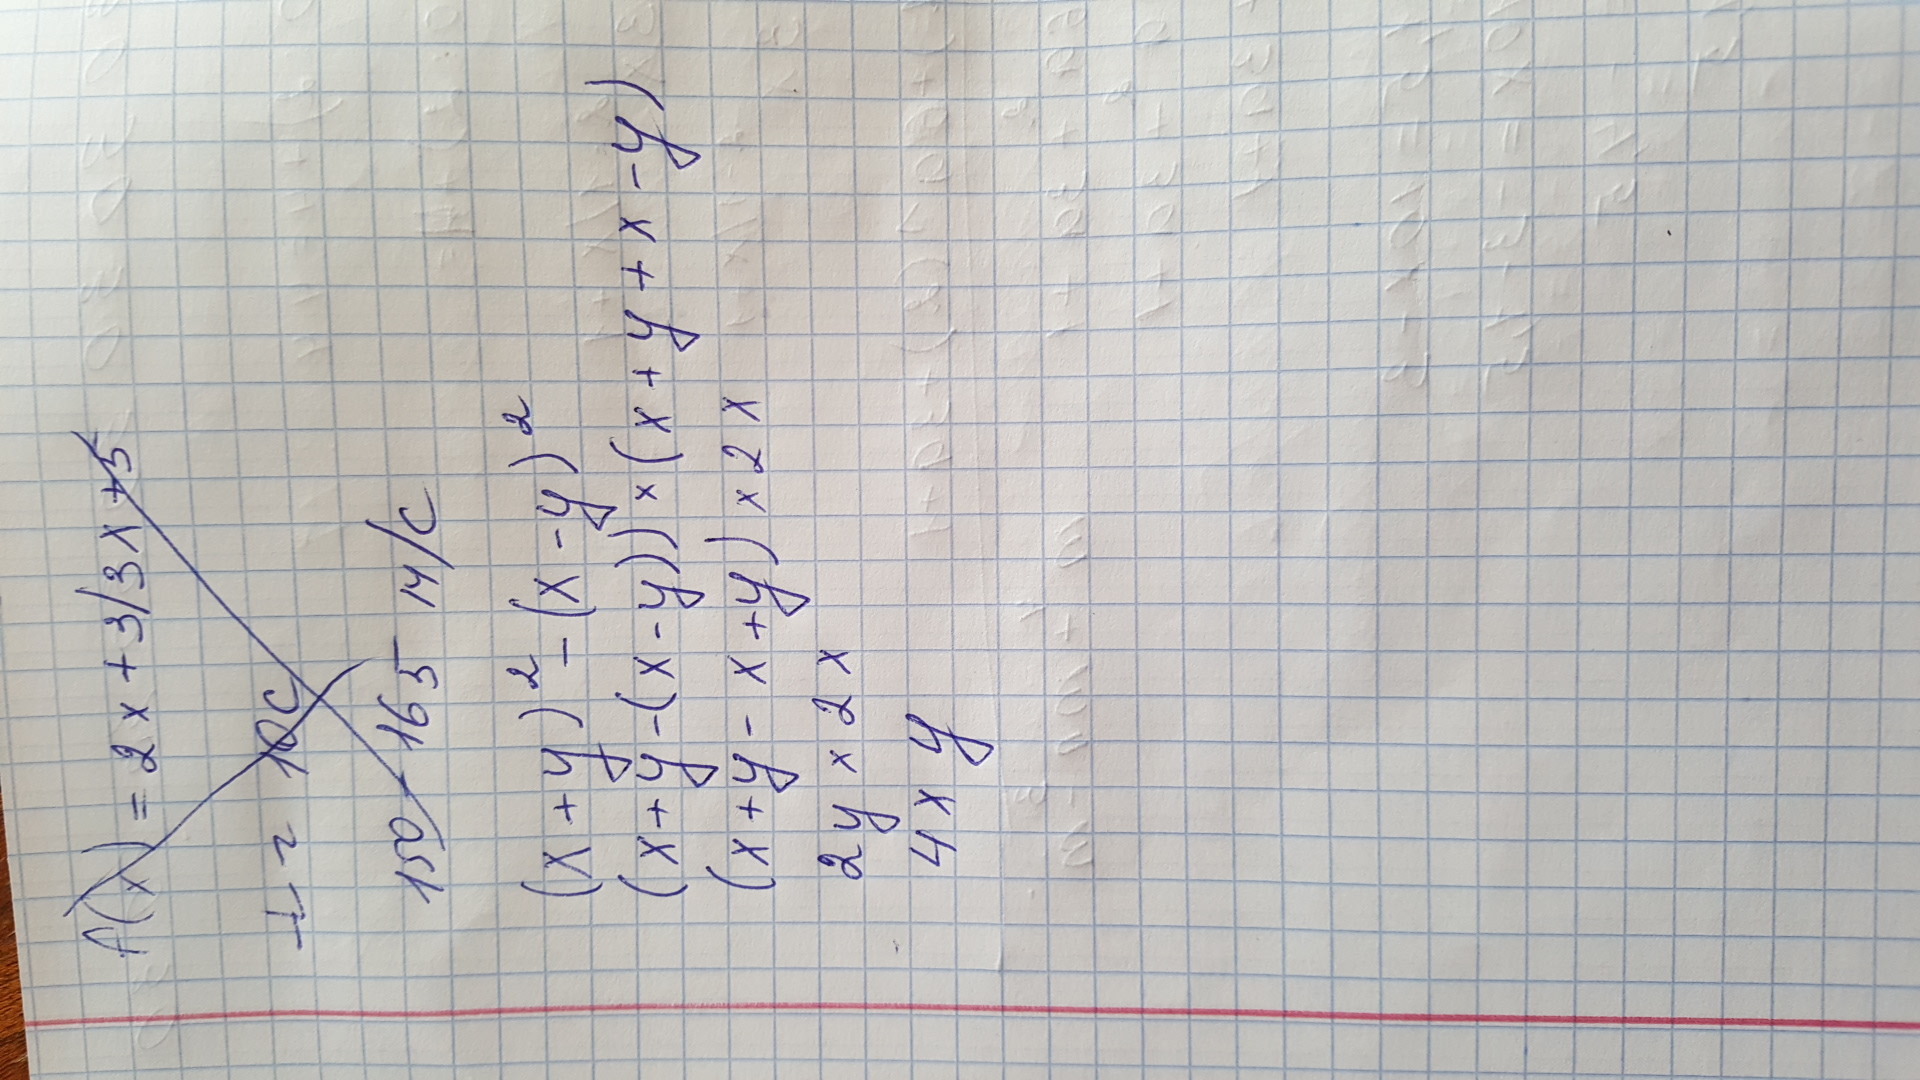 A(x) = 2x + 3/3x + 5
t = 10c
150 - 165 м/с
(x + y)² - (x - y)²
(x + y - (x - y)) × (x + y + x - y)
(x + y - x + y) × 2x
2y × 2x
4xy